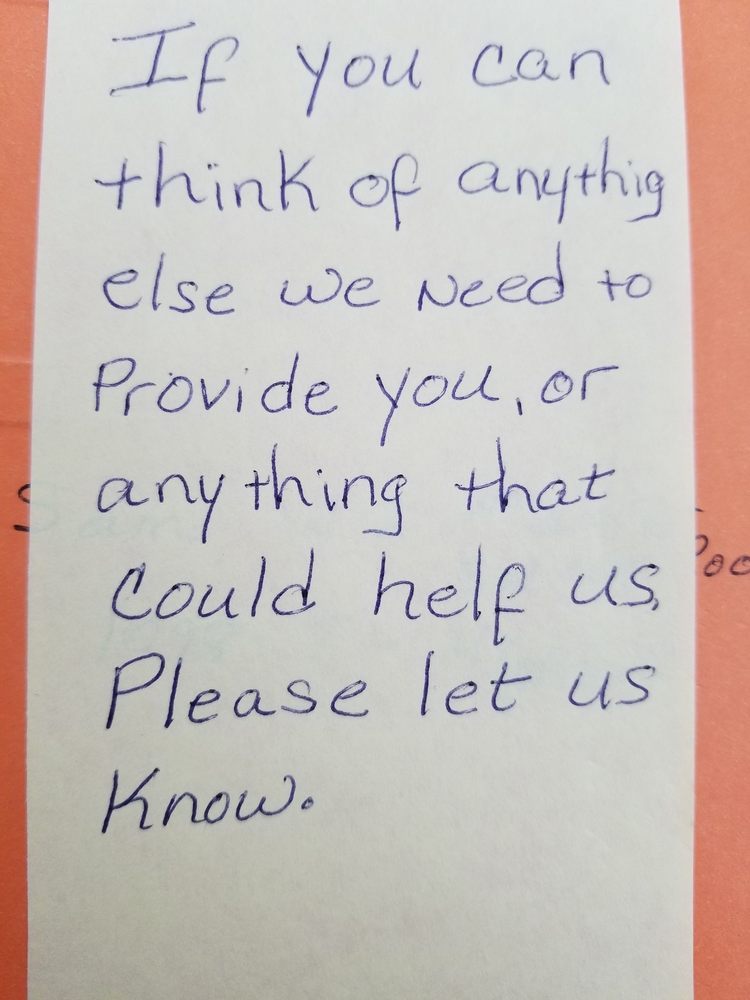 If you can
think of anythig
else we Need to
Provide you, or
anything that
Could help us,
Please let us
Know.